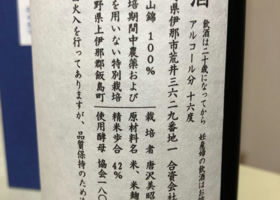 酒
飲酒は二十歳になってから
妊産婦の飲酒はお
アルコール分 十六度
県伊那市荒井三六二九番地一 合資会社
山錦 100%
栽培者 唐沢美昭
培期間中農薬および
原材料名 米、米麹
を用いない特別栽培
精米歩合 42%
野県上伊那郡飯島町
使用酵母 協会一八〇
回火入を行ってありますが、品質保持のため冷